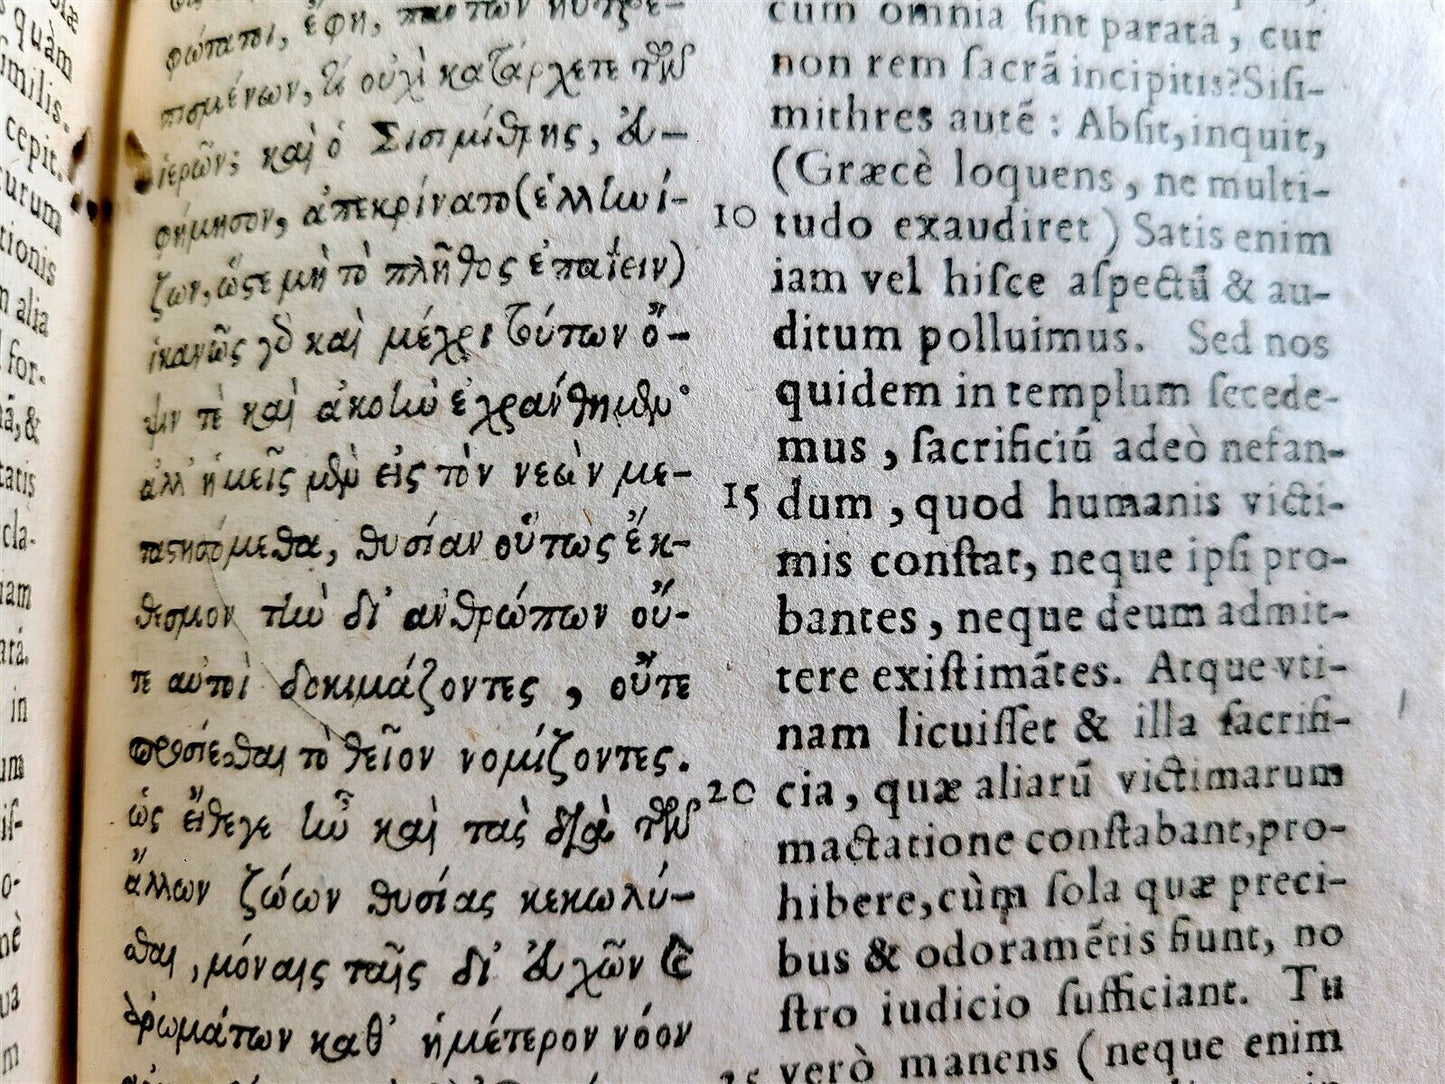 quàm
similis.
cepit.
tionis
alia
for-
tatis
cla-
iam
in
φώτατοι, ἔφη,
πισμένων, τί οὐχὶ κατάρχετε τῶν
ἱερῶν; καὶ ὁ Σισιμίθρης, εὐ-
φήμησον, ἀπεκρίνατο (ἑλληνί-
ζων, ὥστε μὴ τὸ πλῆθος ἐπαΐειν)
ἱκανῶς γὸ καὶ μέχρι τούτων ὄ-
ψιν τε καὶ ἀκοὴν ἐχράνθημεν·
ἀλλ' ἡμεῖς μὲν εἰς τὸν νεὼν με-
ταστησόμεθα, θυσίαν οὕτως ἔκ-
θεσμον τὴν δι' ἀνθρώπων οὔ-
τε αὐτοὶ δοκιμάζοντες, οὔτε
προσίεσθαι τὸ θεῖον νομίζοντες.
ὡς εἴθεγε ἦν καὶ τὰς διὰ τῶν
ἄλλων ζώων θυσίας κεκωλύ-
σθαι, μόναις ταῖς δι' εὐχῶν καὶ
ἀρωμάτων καθ' ἡμέτερον νόον
cum omnia sint parata, cur
non rem sacrā incipitis? Sisi-
mithres autē: Absit, inquit,
(Græcè loquens, ne multi-
10 tudo exaudiret) Satis enim
iam vel hisce aspectū & au-
ditum polluimus. Sed nos
quidem in templum secede-
mus, sacrificiū adeò nefan-
15 dum, quod humanis victi-
mis constat, neque ipsi pro-
bantes, neque deum admit-
tere existimātes. Atque vti-
nam licuisset & illa sacrifi-
20 cia, quæ aliarū victimarum
mactatione constabant, pro-
hibere, cùm sola quæ preci-
bus & odoramētis fiunt, no
stro iudicio sufficiant. Tu
25 verò manens (neque enim